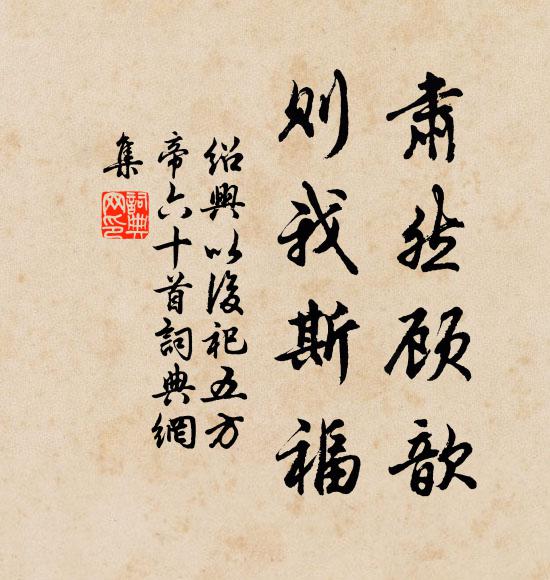 肃然顾歆
则我斯福
绍兴以后祀五方
帝六十首詞典網
集
詞典
网印